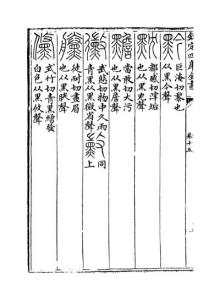 欽定四庫全書
卷十五
巨淹切黎也
也从黑今聲
都感切滓垢
也从黑冘聲
當敢切大污
也从黑詹聲
武悲切物中久雨
青黑从黑微省聲
同
上
徒耐切畫眉
也从黑朕聲
式竹切青黑繒發
白色从黑攸聲